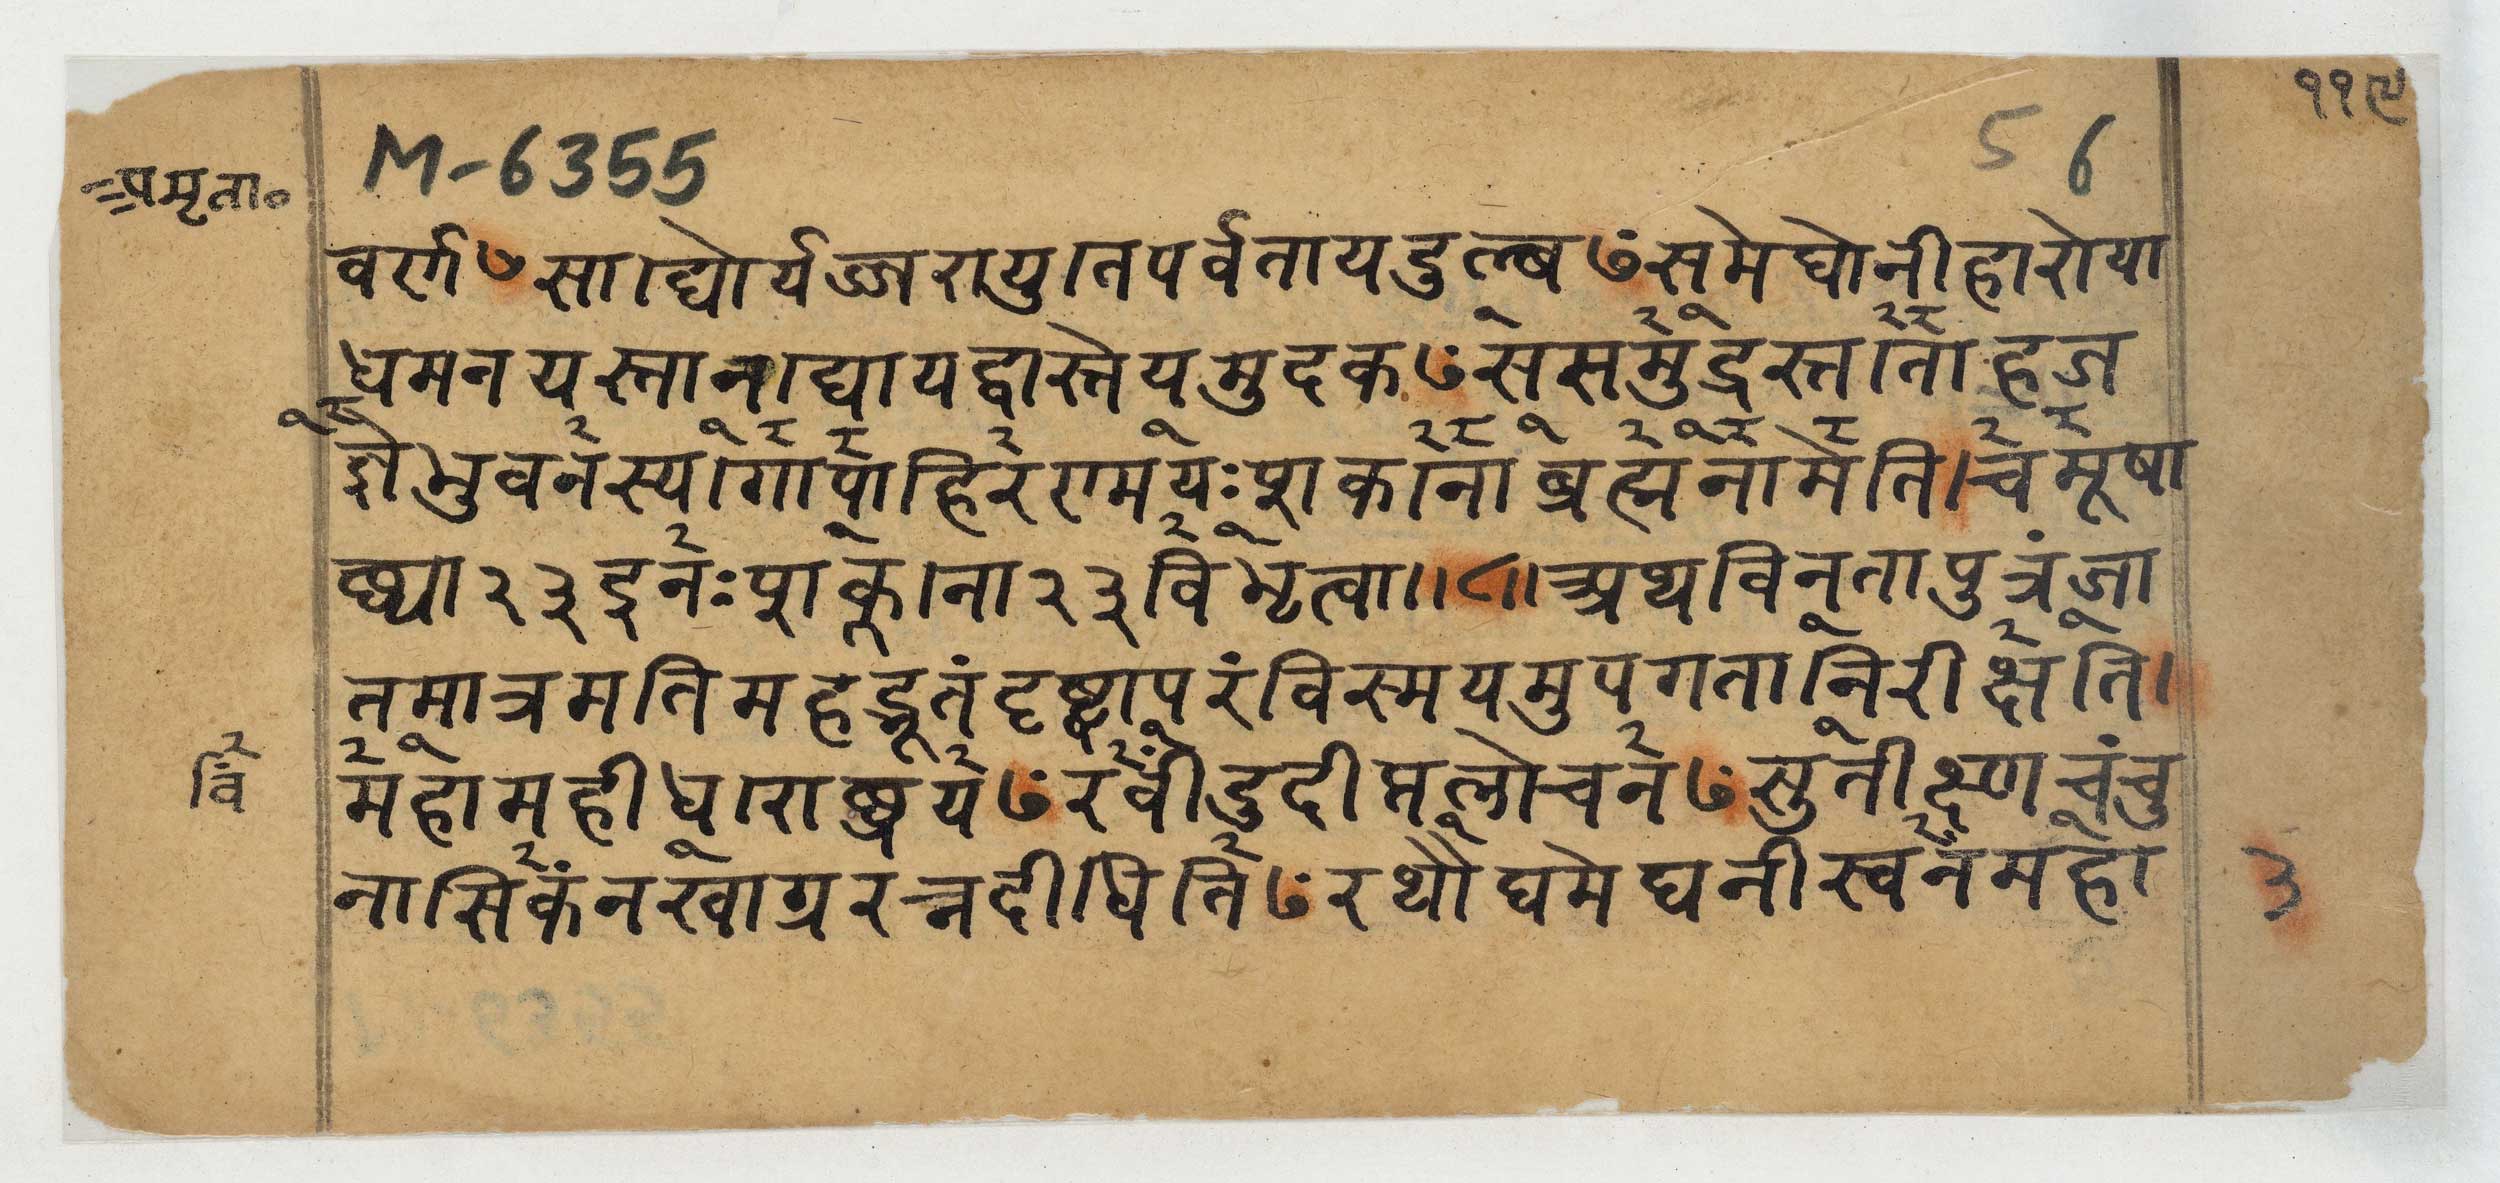 ११९
M-6355
5 6
पमृता०
वर्ण७सा।द्योर्यज्जरायु।तपर्वतायडुल्ब७ंसमेघोनीहारोया
धमनयस्ता।नाद्यायद्वास्तेयमुदक७ंससमुद्रस्त।तोहज
ज्ञेभुवनस्य।गोपाहिरण्मयःशकु।नोब्रह्मनामेति।चमूषा
छ्या२३इनःशकु।ना२३विभृत्वा॥८॥अथविनतापुत्रंजा
तमात्रमतिमहद्भूतंदृष्ट्वापरंविस्मयमुपगतानिरीक्षति।
वि
महामहीध।राछ्रय७ंरवींडुदीप्तलोचन७ंसुतीक्ष्णचंचु
नासिकंनखाग्ररत्नदीधिति७ंरथौघमेघनीस्वनमहा
३